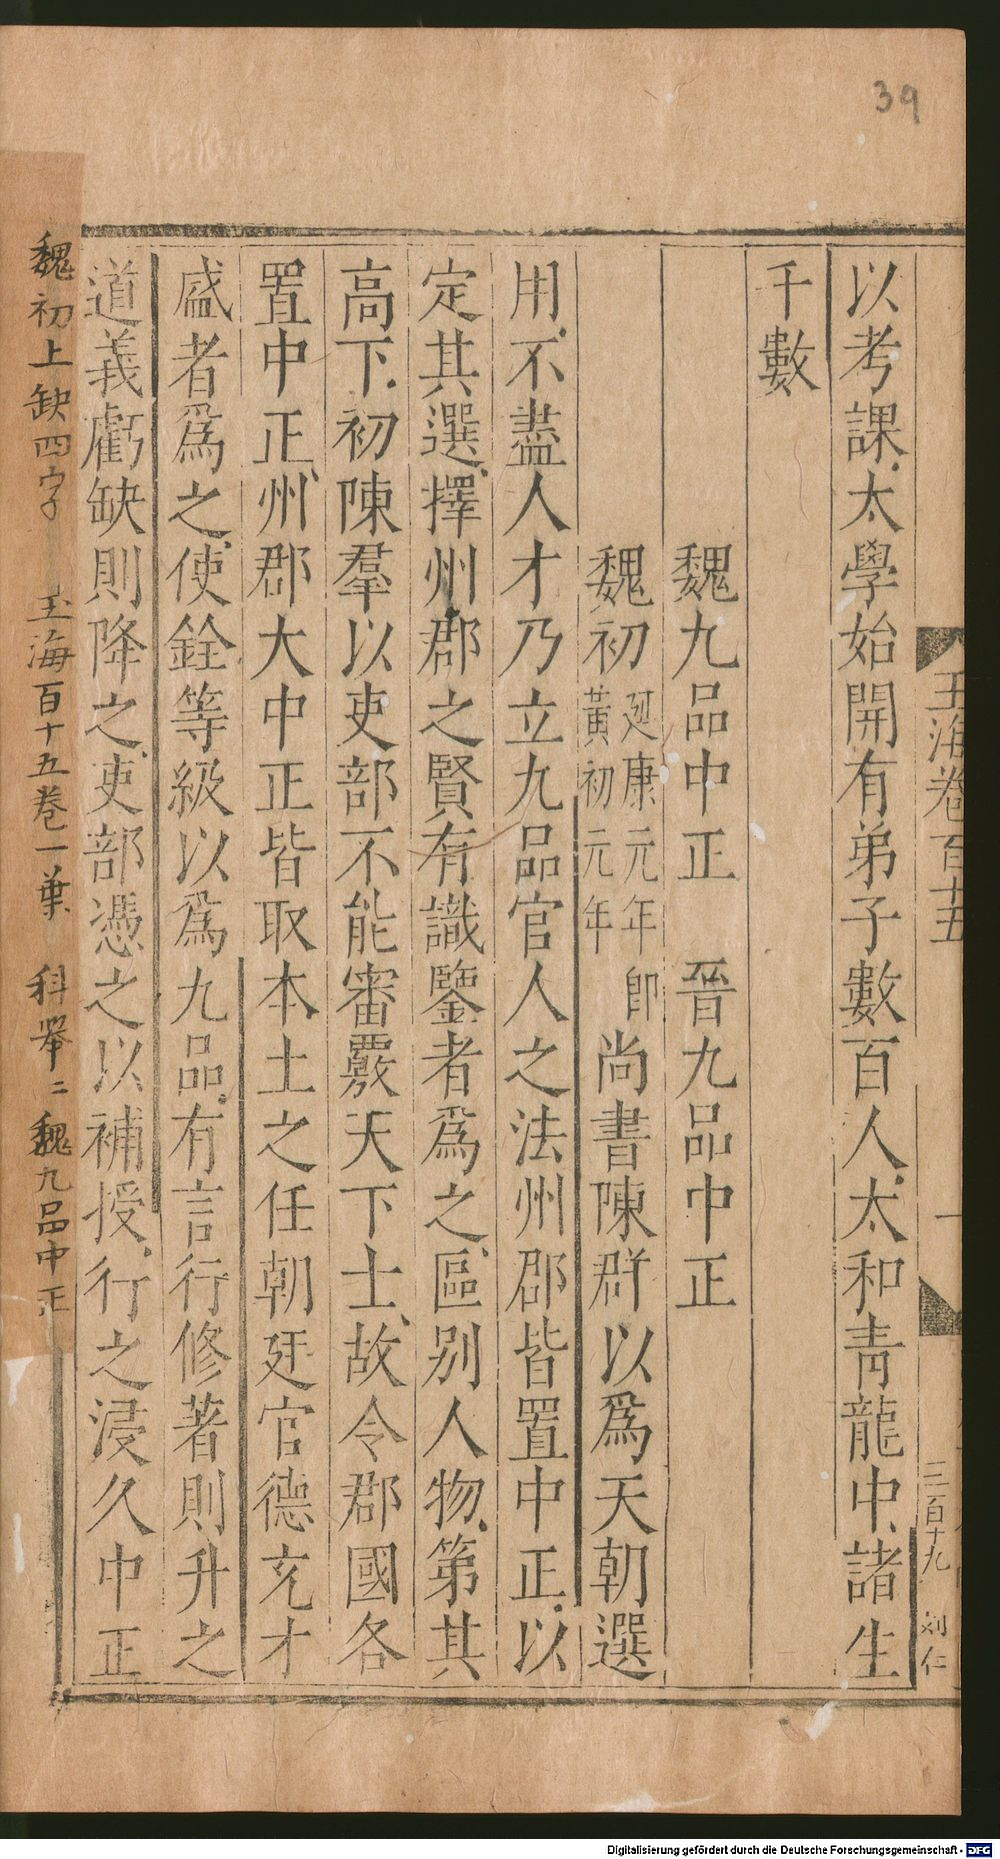 39
玉海卷百十五
一
三百十九 刘仁
以考課太學始開有弟子數百人太和青龍中諸生
千數
魏九品中正 晉九品中正
魏初延康元年卽黃初元年尚書陳群以爲天朝選
用不盡人才乃立九品官人之法州郡皆置中正以
定其選擇州郡之賢有識鑒者爲之區别人物第其
高下初陳羣以吏部不能審覈天下士故令郡國各
置中正州郡大中正皆取本土之任朝廷官德充才
盛者爲之使銓等級以爲九品有言行修著則升之
道義虧缺則降之吏部憑之以補授行之浸久中正
魏初上缺四字 玉海百十五卷一葉 科舉二 魏九品中正
Digitalisierung gefördert durch die Deutsche Forschungsgemeinschaft - DFG